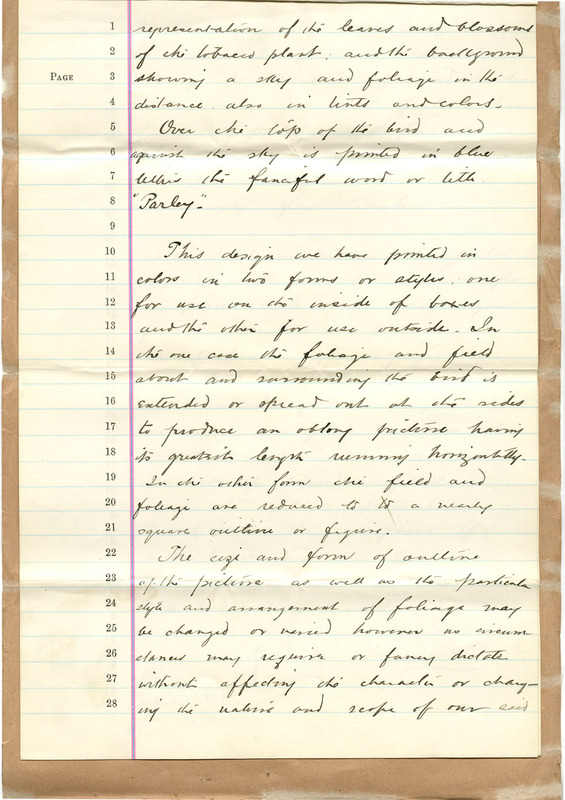 1 representation of the leaves and blossoms
2 of the tobacco plant; and the background
PAGE 3 showing a sky and foliage in the
4 distance also in tints and colors.
5 Over the top of the bird and
6 against the sky is printed in blue
7 letters the fanciful word or title
8 "Parley".
9
10 This design we have printed in
11 colors in two forms or styles; one
12 for use on the inside of boxes
13 and the other for use outside. In
14 the one case the foliage and field
15 about and surrounding the bird is
16 extended or spread out at the sides
17 to produce an oblong picture having
18 its greatest length running horizontally.
19 In the other form the field and
20 foliage are reduced to a nearly
21 square outline or figure.
22 The size and form of outline
23 of the picture as well as the particular
24 style and arrangement of foliage may
25 be changed or varied however as circum-
26 stances may require or fancy dictate
27 without affecting the character or chang-
28 ing the nature and scope of our said